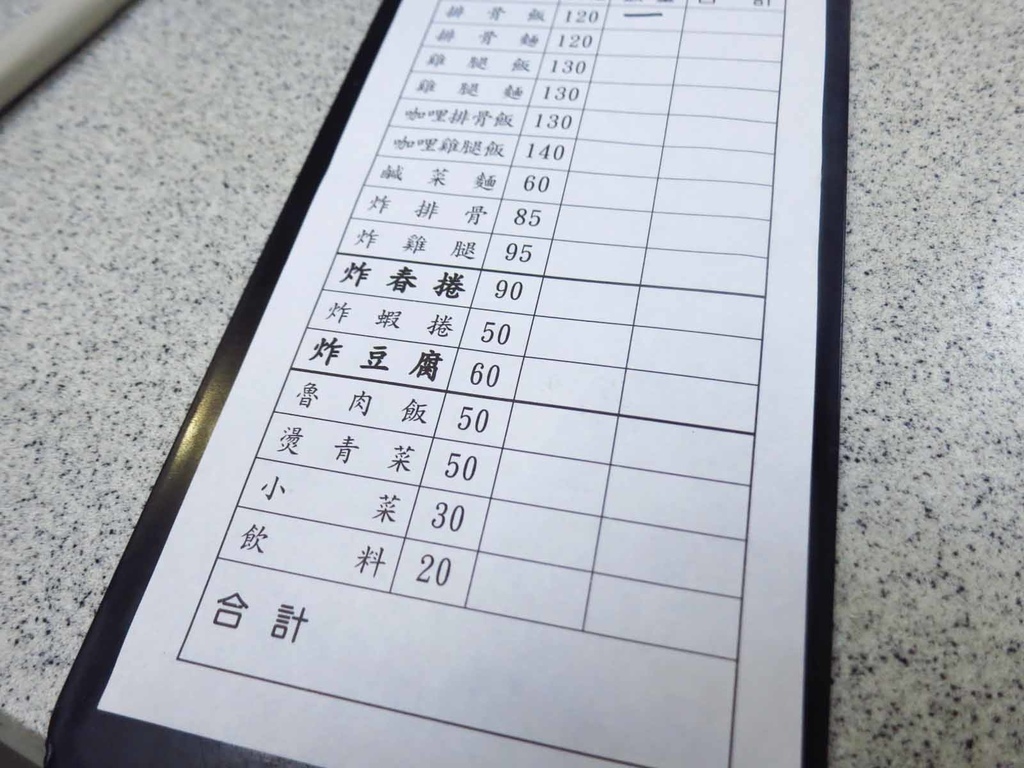 排骨飯 120 一
排骨麵 120
雞腿飯 130
雞腿麵 130
咖哩排骨飯 130
咖哩雞腿飯 140
鹹菜麵 60
炸排骨 85
炸雞腿 95
炸春捲 90
炸蝦捲 50
炸豆腐 60
魯肉飯 50
燙青菜 50
小菜 30
飲料 20
合計